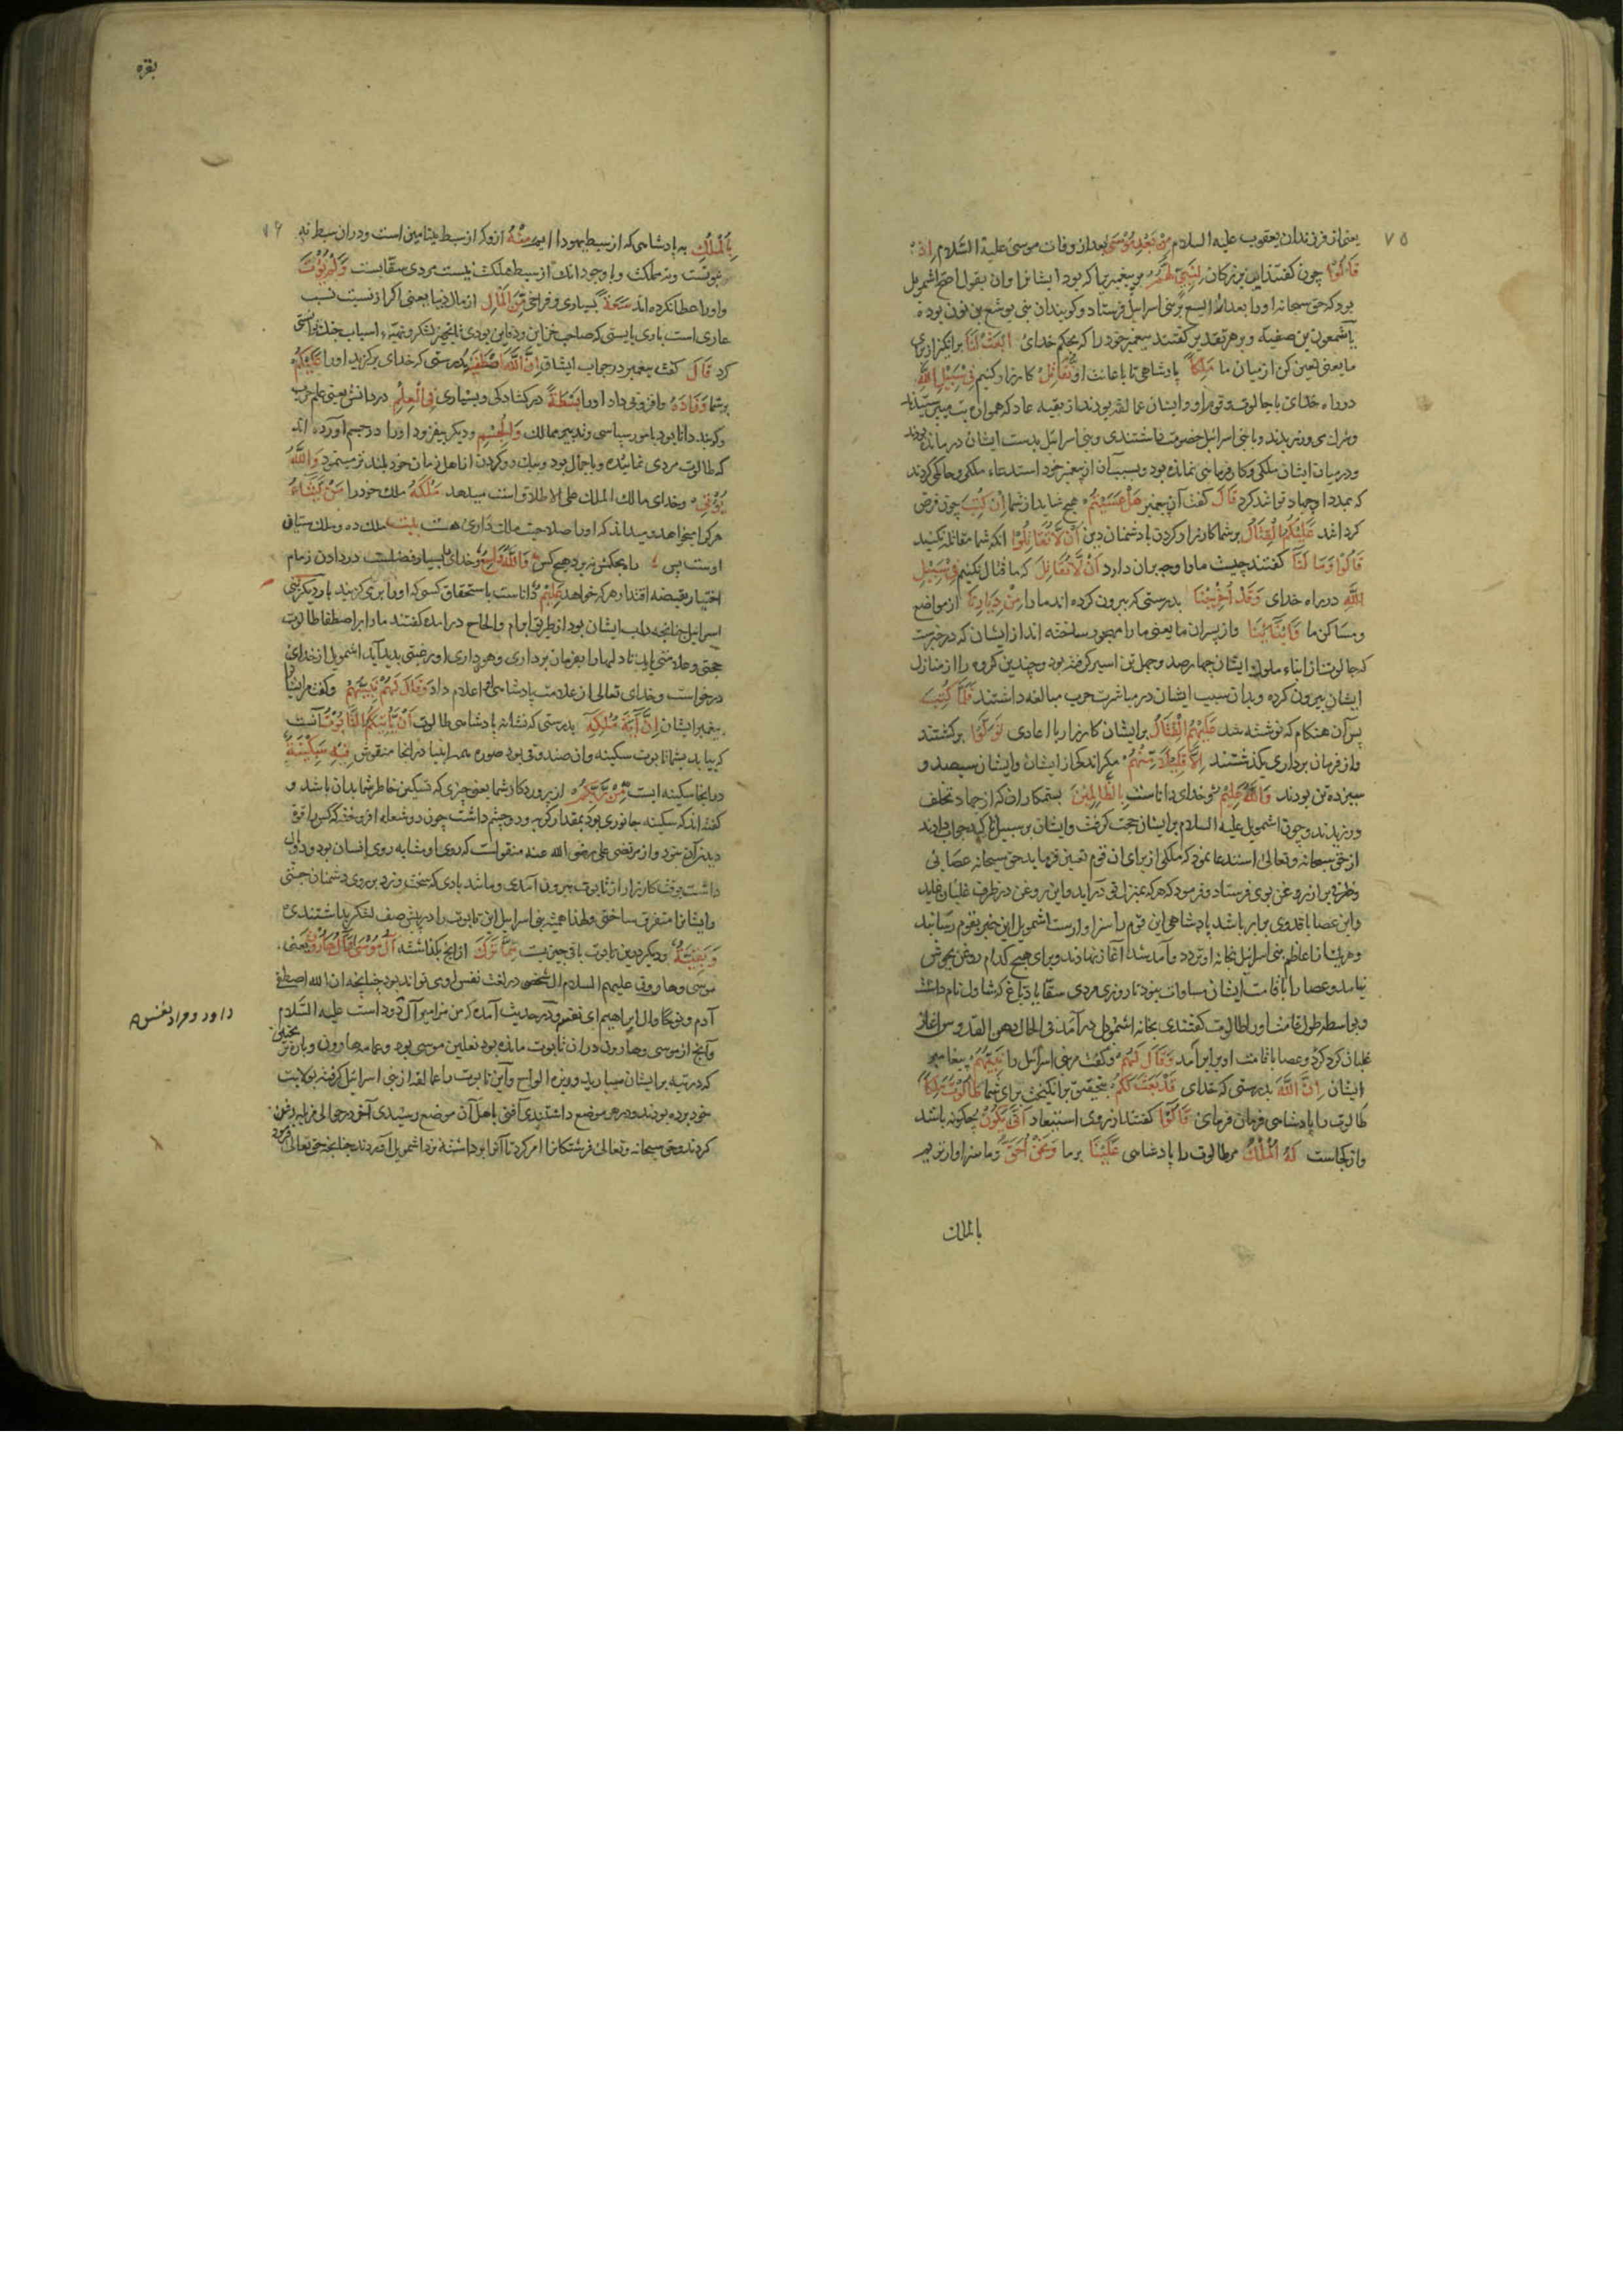 ۷۵
یعنی از فرزندان یعقوب علیه السلام مِنْ بَعْدِ مُوسَى بعد از وفات موسی علیه السّلام اِذْ
قَالُوْا چون گفتند این بزرگان لِنَبِیٍّ لَهُمُ مر پیغمبریرا که بود ایشانرا وان بقول اصح اشمویل
بود که حق سبحانه اورا بعد الیسع بر بنی اسرائیل فرستاد و گویند آن نبی یوشع بن نون بوده
یا شمعون بن صفیه و بر هر تقدیر گفتند پیغمبر خود را که بحکم خدای ابْعَثْ لَنَا برانگیز از برای
ما یعنی تعین کن از میان ما مَلِكًا پادشاهی تا باعانت او نُقَاتِلْ کارزار کنیم فِیْ سَبِیْلِ اللهِ
در راه خدای با جالوت و قوم او و ایشان عمالقه بودند از بقیه عاد که همواره بت میپرستیدند
و با بنی اسرائیل خصومت داشتندی و بنی اسرائیل بدست ایشان درمانده بودند
و در میان ایشان ملکی و کارفرمائی نمانده بود و بسبب آن از پیغمبر خود استدعاء ملکی و حاکمی کردند
که بمدد او جهاد توانند کرد قَالَ گفت آن پیغمبر هَلْ عَسَیْتُمْ هیچ شاید از شما اِنْ كُتِبَ چون فرض
کرده شد عَلَیْكُمُ الْقِتَالُ بر شما کارزار کردن با دشمنان دین اَنْ لَّا تُقَاتِلُوْا انکه شما مقاتله نکنید
قَالُوْا وَمَا لَنَا گفتند چیست مارا و چه بران دارد اَنْ لَّا نُقَاتِلَ که ما قتال نکنیم فِیْ سَبِیْلِ
اللهِ در راه خدای وَقَدْ اُخْرِجْنَا بدرستی که بیرون کرده اند مارا مِنْ دِیَارِنَا از مواضع
و مساکن ما وَاَبْنَائِنَا و از پسران ما یعنی مارا مهجور ساخته اند از ایشان که در خبرست
که جالوت از ابناء ملوک ایشان چهارصد و چهل تن اسیر گرفته بود و چندین گروه را از منازل
ایشان بیرون کرده و بدان سبب ایشان در مباشرت حرب مبالغه داشتند فَلَمَّا كُتِبَ
پس آن هنگام که نوشته شد عَلَیْهِمُ الْقِتَالُ بر ایشان کارزار با اعادی تَوَلَّوْا برگشتند
و از فرمان برداری بگذشتند اِلَّا قَلِیْلًا مِنْهُمْ مگر اندکی از ایشان و ایشان سیصد و
سیزده تن بودند وَاللهُ عَلِیْمٌ و خدای داناست بِالظَّالِمِیْنَ بستمکاران که از جهاد تخلف
ورزیدند و چون اشمویل علیه السلام بر ایشان حجت گرفت و ایشان بر سبیل جواب دادند
از حق سبحانه و تعالی استدعا نمود که ملکی از برای ان قوم تعین فرماید حق سبحانه عصایی
و ظرفی پر از روغن بوی فرستاد و فرمود که هر که بمنزل تو درآید و این روغن در ظرف غلیان نماید
و این عصا با قد وی برابر باشد پادشاهی این قوم را سزاوار است اشمویل این خبر بقوم رسانید
و هر یک از اعاظم بنی اسرائیل بخانه او تردد و آمد شد آغاز نهادند و برای هیچ کدام روغن بجوش
نیامد و عصا را با قامت ایشان مساوات نبود تا روزی مردی سقا یا دباغ که شاول نام داشت
و بواسطه طول قامت اورا طالوت گفتندی بخانه اشمویل درآمد فی الحال دهن القدس آغاز
غلیان کرد و عصا با قامت او برابر آمد وَقَالَ لَهُمْ و گفت مر بنی اسرائیل را نَبِیُّهُمْ پیغامبر
ایشان اِنَّ اللهَ بدرستی که خدای قَدْ بَعَثَ لَكُمْ بتحقیق برانگیخت برای شما طَالُوْتَ مَلِكًا
طالوت را پادشاهی فرمان فرمای قَالُوْا گفتند از روی استبعاد اَنّٰی یَكُوْنُ چگونه باشد
و از کجاست لَهُ الْمُلْكُ مر طالوت را پادشاهی عَلَیْنَا بر ما وَنَحْنُ اَحَقُّ و ما سزاوارتریم
بالملک
بقره
۷۶
بِالْمُلْكِ به پادشاهی که از سبط یهودا ایم مِنْهُ ازو که از سبط بنیامین است و در ان سبط نه
نبوتست و نه مملکت و با وجود انکه از سبط مملکت نیست مردی سقاست وَلَمْ یُؤْتَ
و اورا عطا نکرده اند سَعَةً بسیاری و فراخی مِنَ الْمَالِ از مال دنیا یعنی اگر از نسبت نسب
عاری است باری بایستی که صاحب خزاین و دفاین بودی تا تجهیز لشکر و تهیه اسباب جنگ توانستی
کرد قَالَ گفت پیغمبر در جواب ایشان اِنَّ اللهَ اصْطَفٰهُ بدرستی که خدای برگزید اورا عَلَیْكُمْ
بر شما وَزَادَهُ و افزونی داد اورا بَسْطَةً در گشادگی و بسیاری فِی الْعِلْمِ در دانش یعنی علم حرب
و گویند دانا بود بامور سپاسی و تدبیر ممالک وَالْجِسْمِ و دیگر بیفزود اورا در جسم آورده اند
که طالوت مردی نماینده و باجمال بود و بیک سر و گردن از اهل زمان خود بلند تر مینمود وَاللهُ
یُؤْتِیْ و خدای مالک الملک علی الاطلاق است میدهد مُلْكَهُ ملک خود را مَنْ یَشَاءُ
هر کرا میخواهد و میداند که اورا صلاحیت ملک داری هست بیت ملک ده و ملک ستان
اوست بس دم بحکمش نزد هیچ کس وَاللهُ وَاسِعٌ و خدای بسیار فضلست در دادن زمام
اختیار بقبضه اقتدار هر که خواهد عَلِیْمٌ داناست باستحقاق کسی که اورا برمی گزیند بار دیگر بنی
اسرائیل چنانچه داب ایشان بود از طریق ابرام و الحاح درآمده گفتند مارا بر اصطفا طالوت
حجتی و علامتی باید تا دلهارا بفرمان برداری و هواداری او رغبتی پدید آید اشمویل از خدای
درخواست و خدای تعالی از علامت پادشاهی او اعلام داد وَقَالَ لَهُمْ نَبِیُّهُمْ و گفت مر ایشانرا
پیغمبر ایشان اِنَّ اٰیَةَ مُلْكِهِ بدرستی که نشانه پادشاهی طالوت اَنْ یَاْتِیَكُمُ التَّابُوْتُ آنست
که بیاید بشما تابوت سکینه وان صندوقی بود صوره همه انبیا در انجا منقوش فِیْهِ سَكِیْنَةٌ
در انجا سکینه است مِنْ رَبِّكُمْ از پروردگار شما یعنی چیزی که تسکین خاطر شما بدان باشد و
گفته اند که سکینه جانوری بود بمقدار گربه و دو چشم داشت چون دو شعله افروخته که کس را قوة
دیدن آن نبود و از مرتضی علی رضی الله عنه منقولست که روی او مشابه روی انسان بود و دو بال
داشت بوقت کارزار از تابوت بیرون آمدی و مانند بادی که سخت وزد بر روی دشمنان جستی
و ایشانرا متفرق ساختی ولهذا همیشه بنی اسرائیل این تابوت را در پیش صف لشکر بداشتندی
وَبَقِیَّةٌ و دیگر در ین تابوت باقی چیزیست مِمَّا تَرَكَ از انچه بگذاشته اٰلُ مُوْسٰی وَاٰلُ هَارُوْنَ یعنی
موسی و هارون علیهم السلام ال شخص در لغت نفس او می تواند بود چنانچه ان الله اصطفی
آدم و نوحا وال ابراهیم ای نفسه و در حدیث آمده که من مزامیر آل داود است علیه السّلام
داود و مراد بنفس
وآنچ از موسی و هارون در ان تابوت مانده بود نعلین موسی بود و عمامه هارون و پاره ترنجبین
که در تیه بر ایشان میبارید و ریزه الواح و این تابوت را عمالقه از بنی اسرائیل گرفته بولایت
خود برده بودند و در هر موضع داشتندی آفتی باهل آن موضع رسیدی آخر در حوالی مزبله دفن
کردند و حق سبحانه و تعالی فرشتگانرا امر کرد تا آنرا برداشته نزد اشمویل آوردند چنانچه حق تعالی فرمود